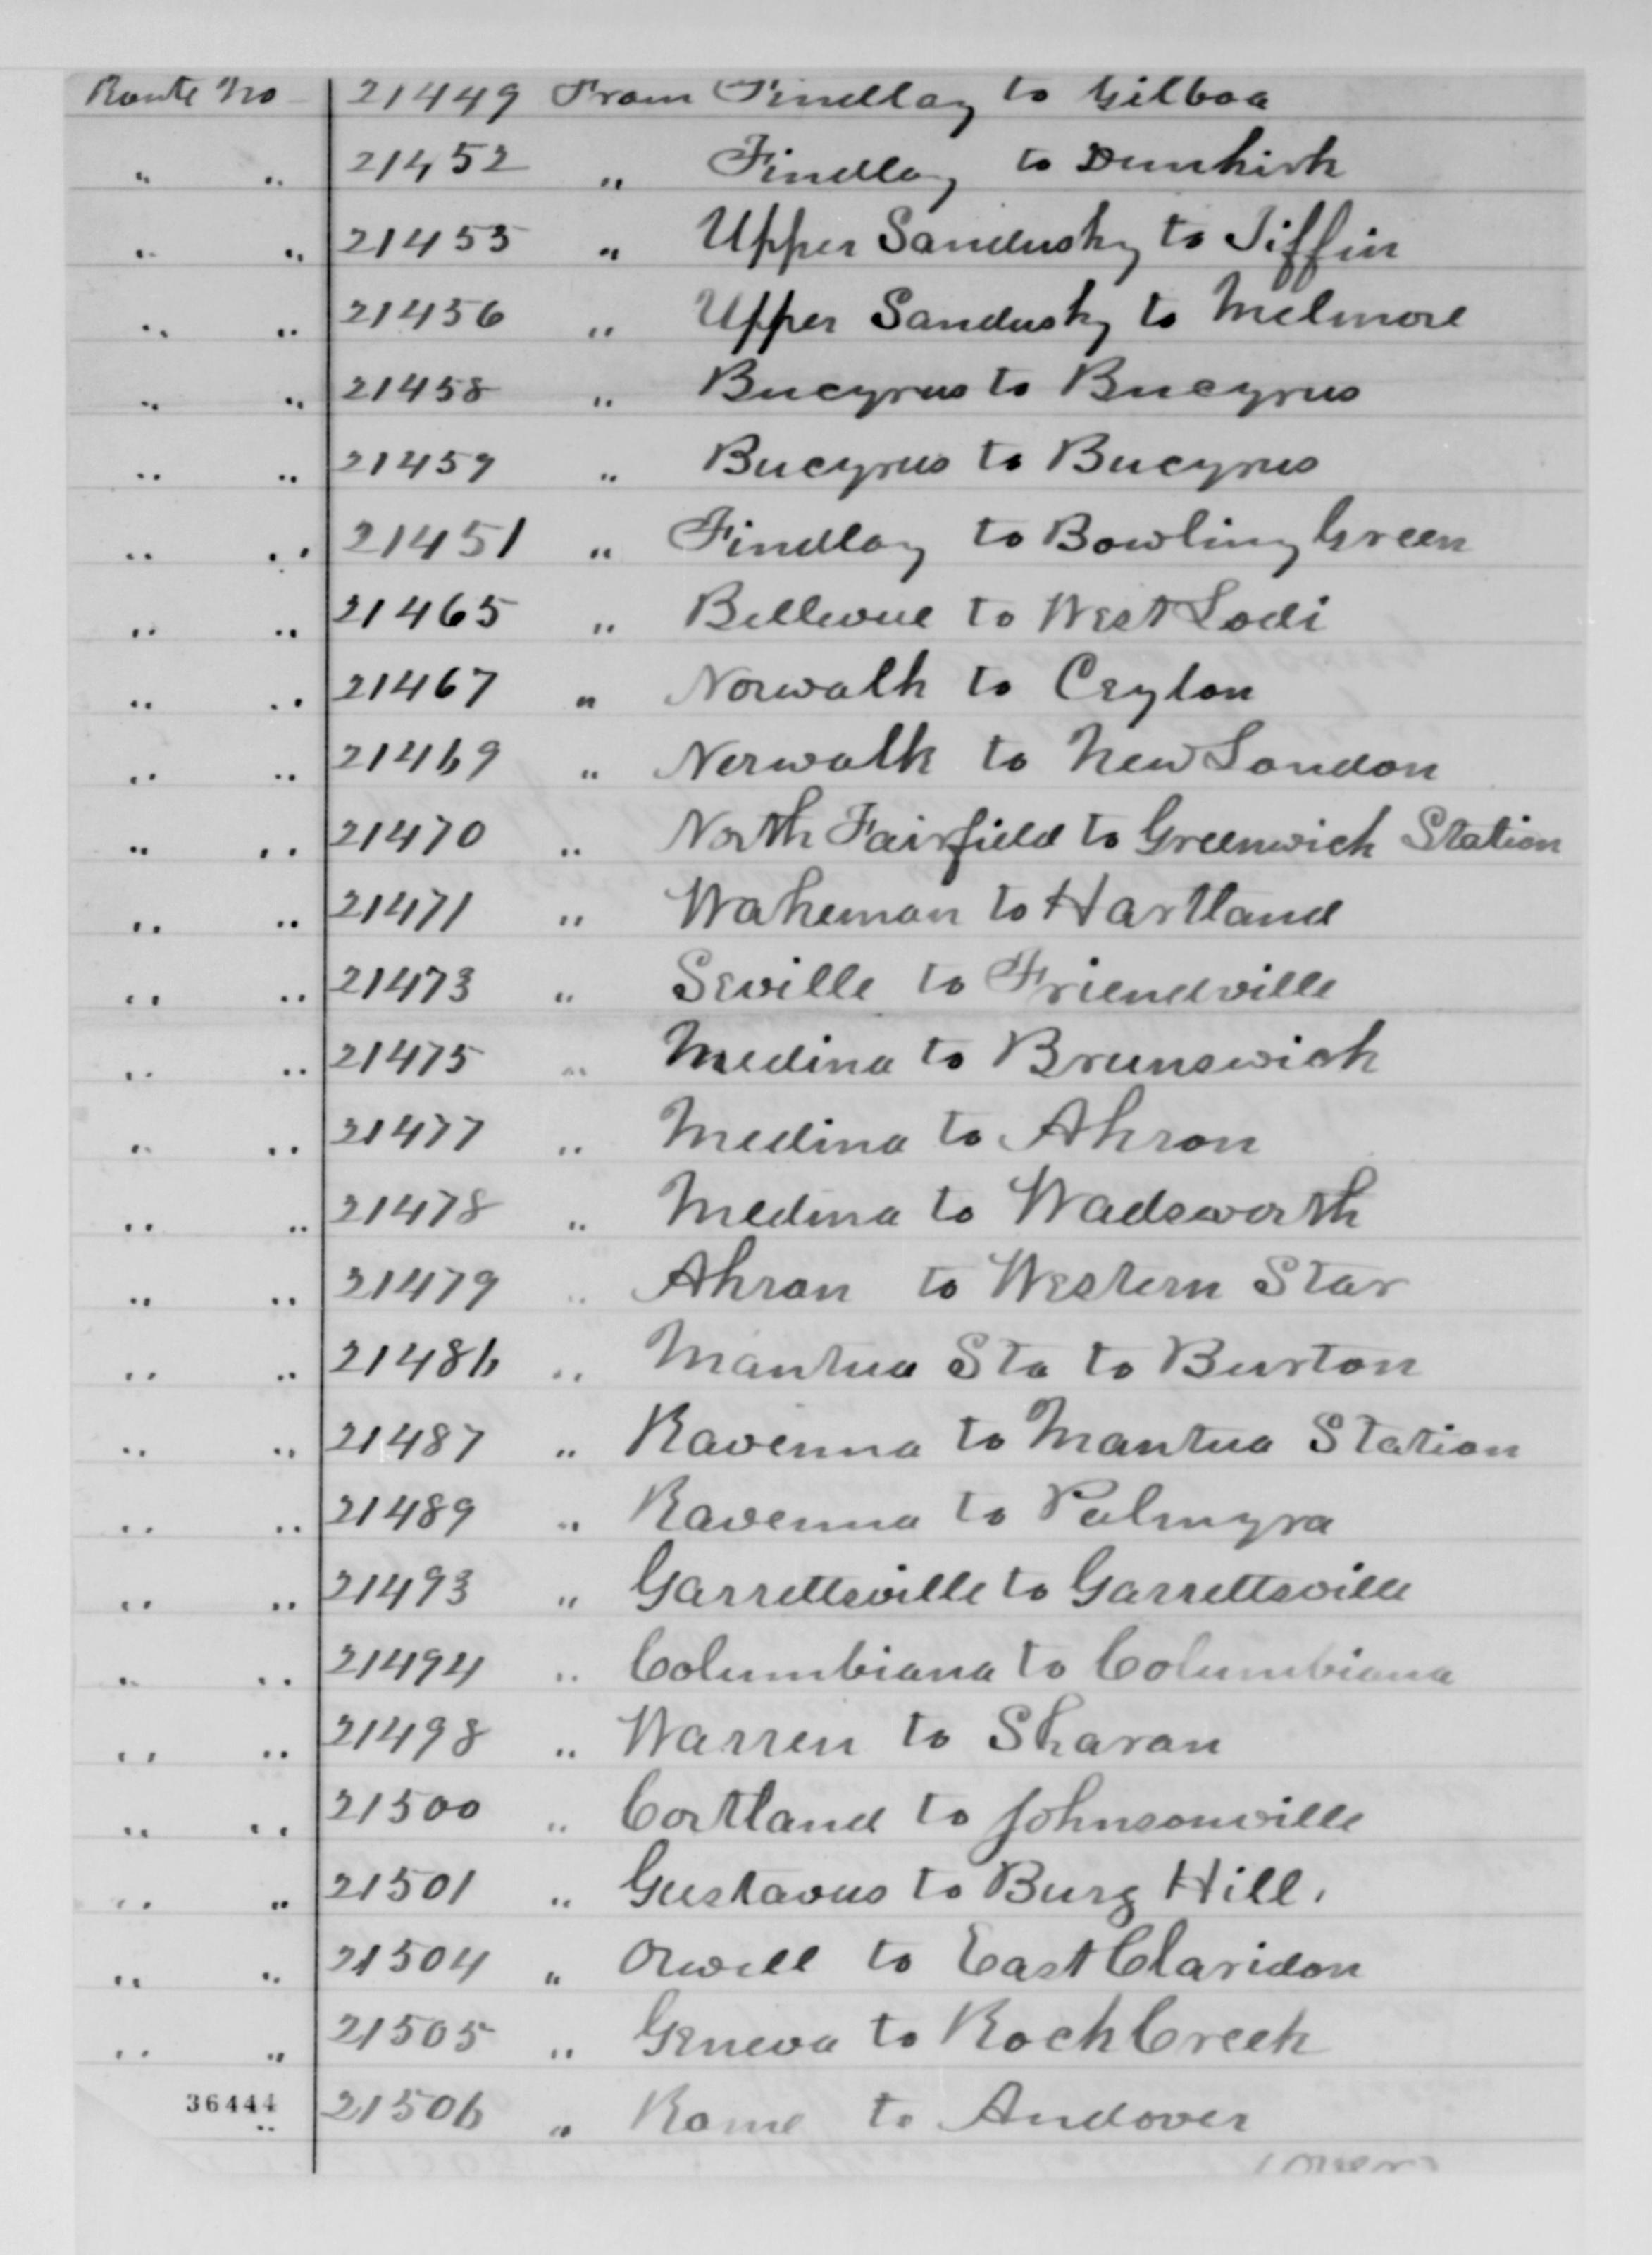 Route No 21449 From Findlay to Gilboa
" " 21452 " Findlay to Dunkirk
" " 21455 " Upper Sandusky to Tiffin
" " 21456 " Upper Sandusky to Melmore
" " 21458 " Bucyrus to Bucyrus
" " 21459 " Bucyrus to Bucyrus
" " 21451 " Findlay to Bowling Green
" " 21465 " Bellevue to West Lodi
" " 21467 " Norwalk to Ceylon
" " 21469 " Norwalk to New London
" " 21470 " North Fairfield to Greenwich Station
" " 21471 " Wakeman to Hartland
" " 21473 " Seville to Friendville
" " 21475 " Medina to Brunswick
" " 21477 " Medina to Akron
" " 21478 " Medina to Wadsworth
" " 21479 " Akron to Western Star
" " 21486 " Mantua Sta to Burton
" " 21487 " Ravenna to Mantua Station
" " 21489 " Ravenna to Palmyra
" " 21493 " Garrettsville to Garrettsville
" " 21494 " Columbiana to Columbiana
" " 21498 " Warren to Sharon
" " 21500 " Cortland to Johnsonville
" " 21501 " Gustavus to Burg Hill.
" " 21504 " Orwell to East Claridon
" " 21505 " Geneva to Rock Creek
36444 " 21506 " Rome to Andover
(over)